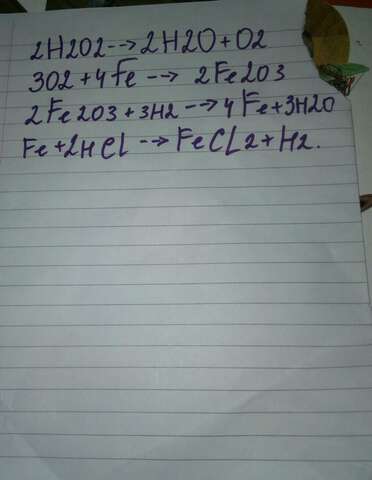 2H2O2-->2H2O+O2
3O2+4Fe--> 2Fe2O3
2Fe2O3+3H2-->4Fe+3H2O
Fe+2HCl-->FeCL2+H2.